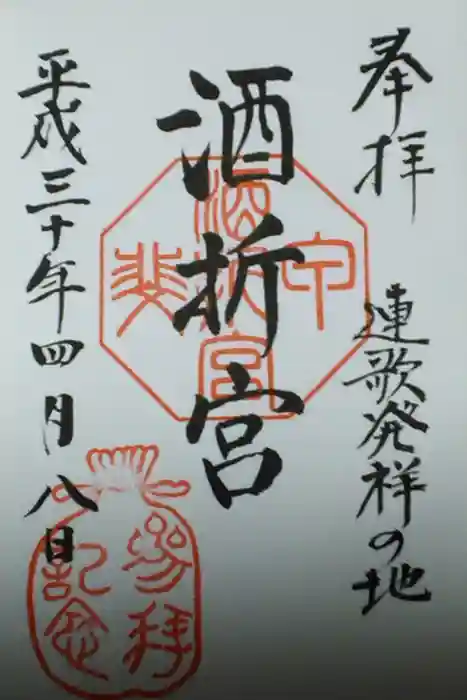 奉拝
連歌発祥の地
酒折宮
平成三十年四月八日
参拝
記念